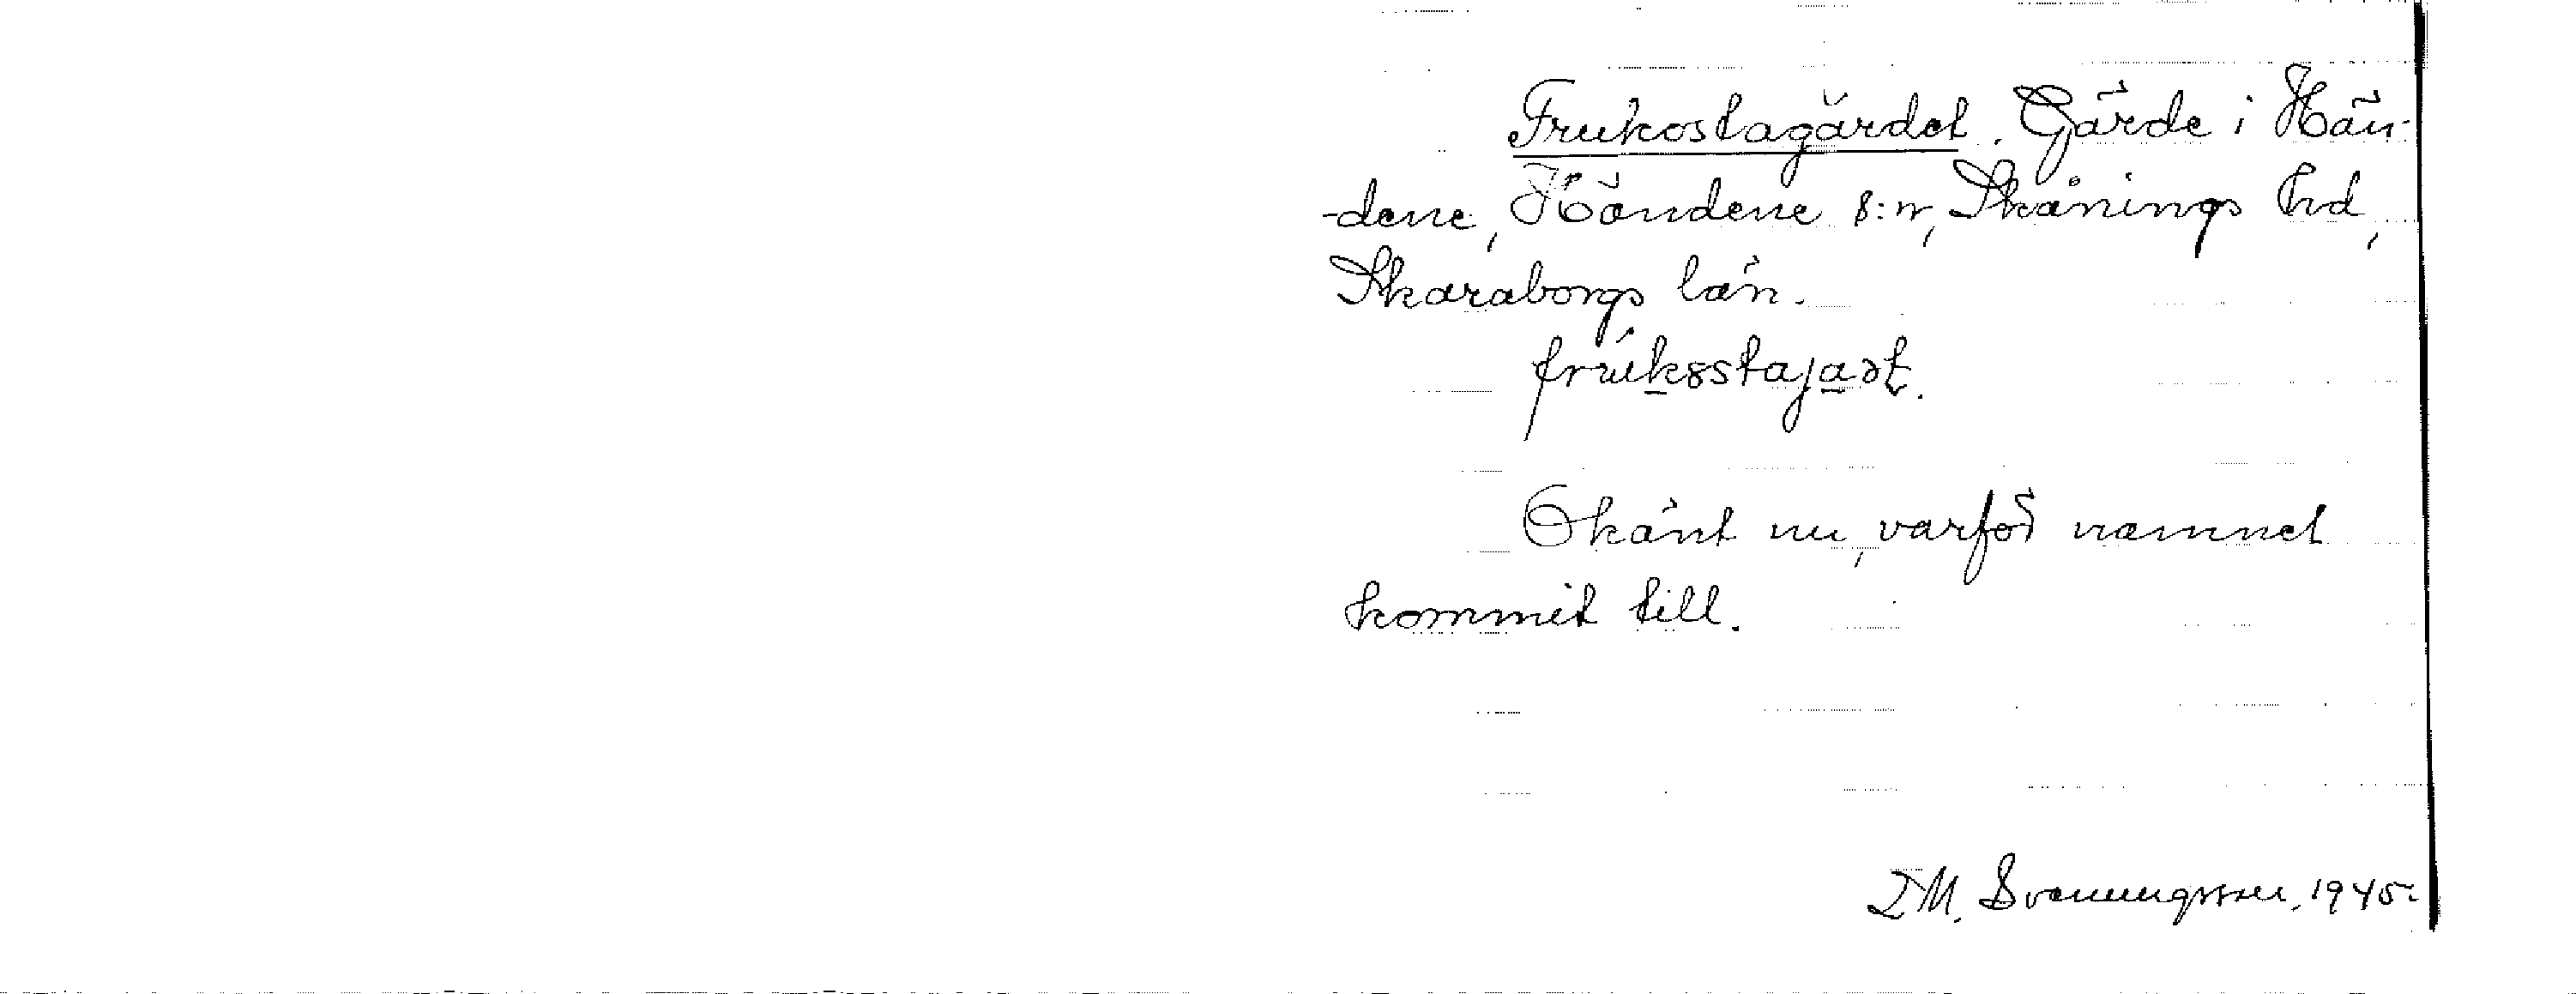 Frukostagärdet. Gärde i Hän-
-dene, Händene s:n, Skånings hd,
Skaraborgs län.
frúkɜstajaət.
Okänt nu, varför namnet
kommit till.
I M. Svenungsson, 1945.